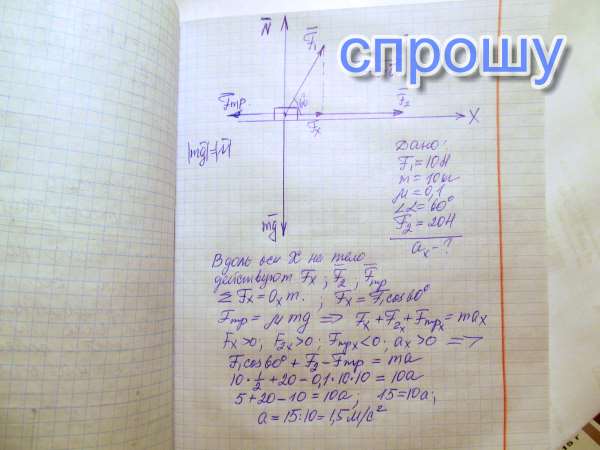 спрошу
N̄
F̄₁
F̄тр.
60
Fx
F̄₂
X
|mḡ|=|N̄|
mḡ
Дано:
F₁=10Н
m=10кг
μ=0,1
∠α=60°
F₂=20Н
aₓ-?
Вдоль оси X на тело
действуют Fₓ; F̄₂; F̄тр
ΣFₓ=aₓm.; Fₓ=F₁cos60°
Fтр=μmg ⇒ Fₓ+F₂ₓ+Fтрₓ=maₓ
Fₓ>0; F₂ₓ>0; Fтрₓ<0; aₓ>0 ⇒
F₁cos60°+F₂-Fтр=ma
10·1/2+20-0,1·10·10=10a
5+20-10=10a; 15=10a;
a=15:10=1,5м/с²